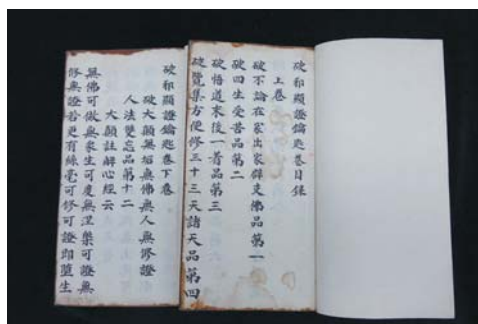 破邪顯證鑰匙卷目录
上卷
破不論在家出家辟支佛品第一
破四生受苦品第二
破悟道末後一着品第三
破覽集方便修三十三天諸天品第四
破邪顯證鑰匙卷下卷
破大顛無垢無佛無人無修證
人法雙忘品第十二
大顛註解心經云
無佛可做無衆生可度無涅槃可證無
修無證若更有絲毫可修可證即墮生